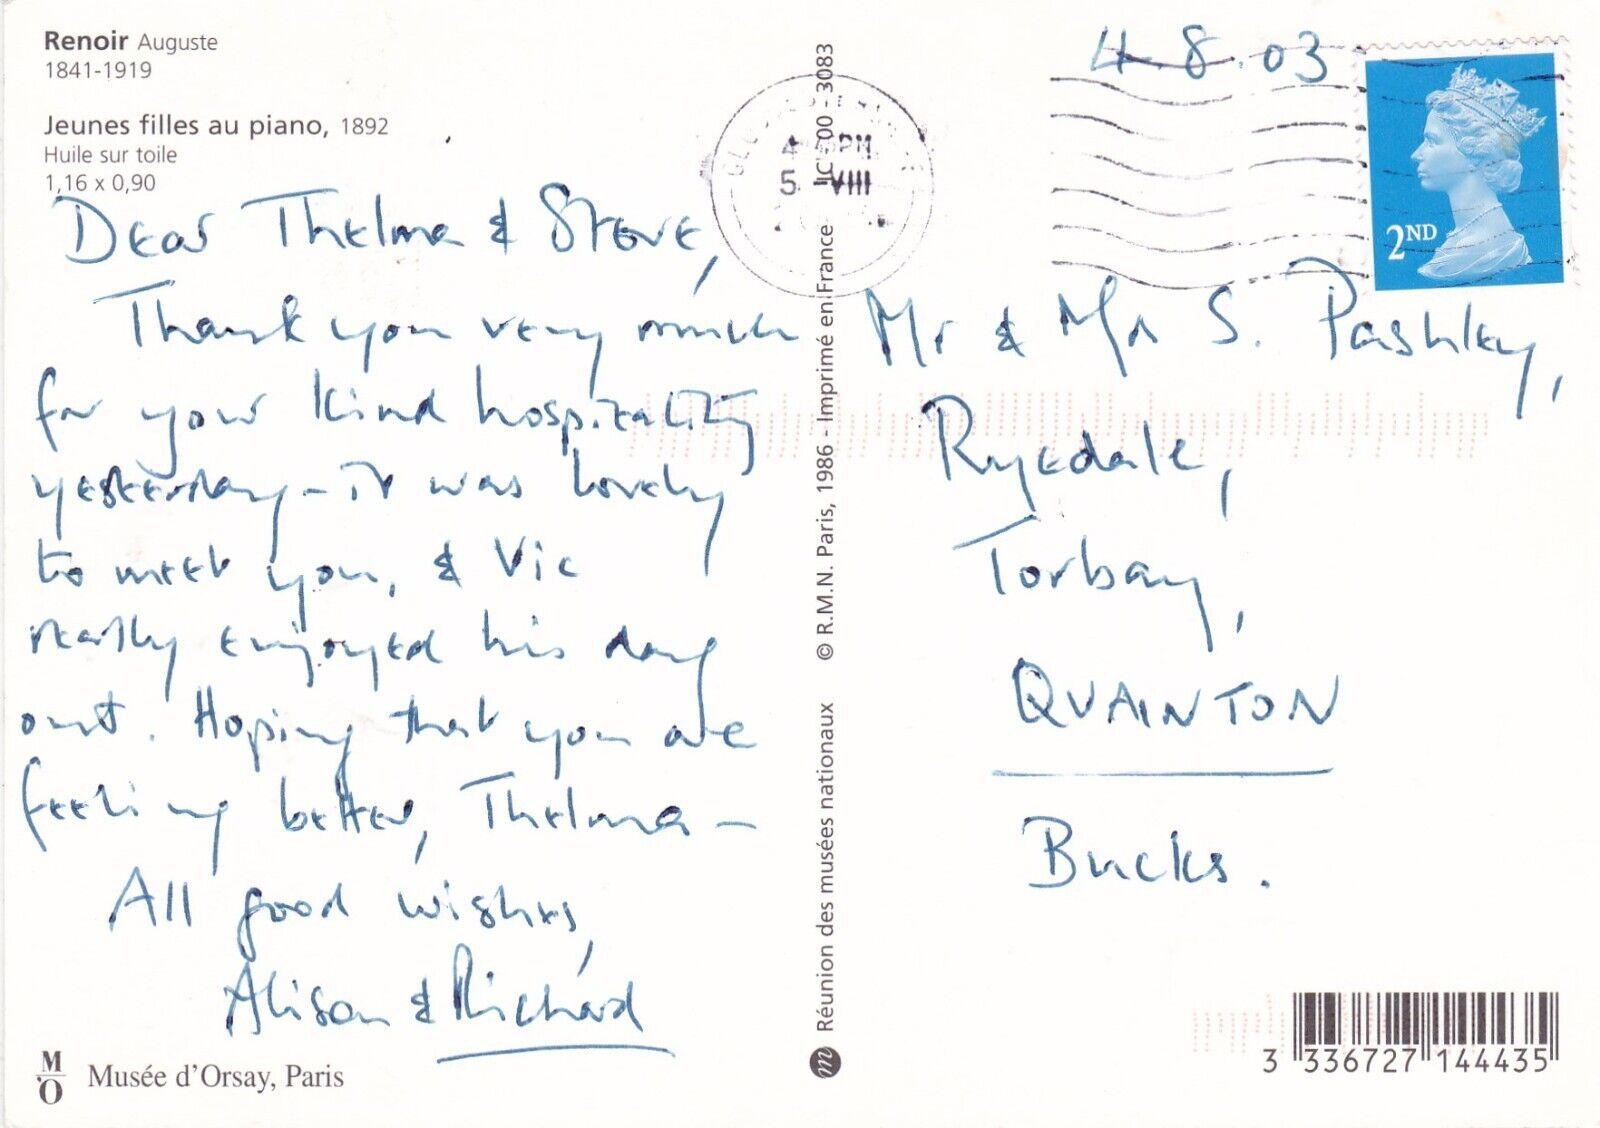 Renoir Auguste
1841-1919
Jeunes filles au piano, 1892
Huile sur toile
1,16 x 0,90
Dear Thelma & Steve,
Thank you very much
for your kind hospitality
yesterday - it was lovely
to meet you, & Vic
really enjoyed his day
out. Hoping that you are
feeling better, Thelma -
All good wishes,
Alison & Richard
Musée d'Orsay, Paris
MO
© R.M.N. Paris, 1986 - Imprimé en France
IC 00 3083
Réunion des musées nationaux
m
PM
5 -VIII
4.8.03
2ND
Mr & Mrs S. Pashley,
Ryedale,
Torbay,
QUAINTON
Bucks.
3 336727 144435